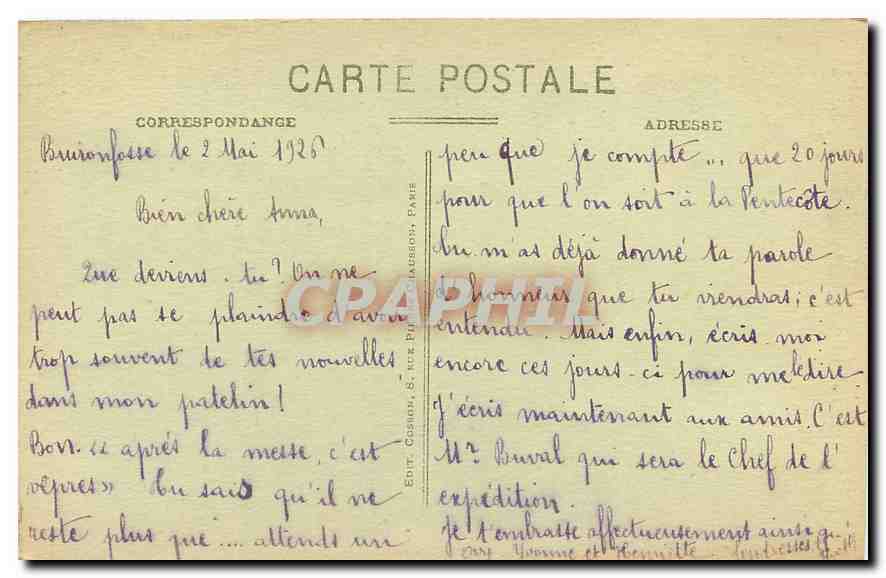 CARTE POSTALE
CORRESPONDANCE
Buironfosse le 2 Mai 1926
Bien chère Anna,
Que deviens-tu? On ne
peut pas se plaindre d'avoir
trop souvent de tes nouvelles
dans mon patelin!
Bon. « après la messe, c'est
vêpres» Tu sais qu'il ne
reste plus que .... attends un
EDIT. COSSON, 8, RUE CHAUSSON, PARIS
ADRESSE
peu que je compte ... que 20 jours
pour que l'on soit à la Pentecôte.
Tu m'as déjà donné ta parole
d'honneur que tu viendras; c'est
entendu. Mais enfin, écris-moi
encore ces jours-ci pour me le dire
J'écris maintenant aux amis. C'est
Mr Buval qui sera le Chef de l'
expédition.
Je t'embrasse affectueusement ainsi
Yvonne et Henriette. Tendresses
CPAPHIL